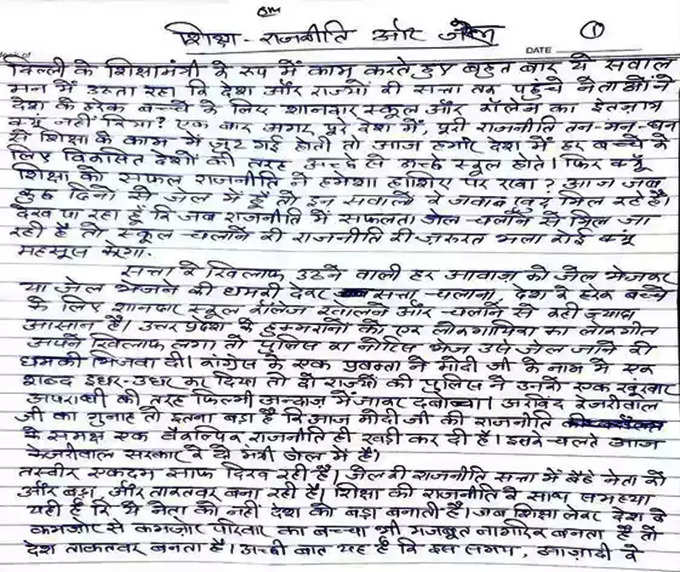 शिक्षा-राजनीति और जेल
DATE
①
दिल्ली के शिक्षामंत्री के रूप में काम करते हुए बहुत बार ये सवाल
मन में उठता रहा कि देश और राज्यों की सत्ता तक पहुंचे नेताओं ने
देश के हरेक बच्चे के लिए शानदार स्कूल और कॉलेज का इंतज़ाम
क्यूँ नहीं किया? एक बार अगर पूरे देश में, पूरी राजनीति तन-मन-धन
से शिक्षा के काम में जुट गई होती तो आज हमारे देश में हर बच्चे के
लिए विकसित देशों की तरह अच्छे से अच्छे स्कूल होते। फिर क्यूँ
शिक्षा को सफल राजनीति ने हमेशा हाशिए पर रखा? आज जब
कुछ दिनों से जेल में हूँ तो इन सवालों के जवाब खुद मिल रहे हैं।
देख पा रहा हूँ कि जब राजनीति में सफलता जेल चलाने से मिल जा
रही है तो स्कूल चलाने की राजनीति की ज़रुरत भला कोई क्यूं
महसूस करेगा.
सत्ता के खिलाफ उठने वाली हर आवाज़ को जेल भेजकर
या जेल भेजने की धमकी देकर सत्ता चलाना, देश के हरेक बच्चे
के लिए शानदार स्कूल कॉलेज खोलने और चलाने से कहीं ज़्यादा
आसान है। उत्तर प्रदेश के हुक्मरानों को एक लोकगायिका का लोकगीत
अपने खिलाफ लगा तो पुलिस का नोटिस भेज उसे जेल जाने की
धमकी भिजवा दी। कांग्रेस के एक प्रवक्ता ने मोदी जी के नाम में एक
शब्द इधर-उधर कर दिया तो दो राज्यों की पुलिस ने उनको एक खूंखार
अपराधी की तरह फिल्मी अन्दाज़ में जाकर दबोचा। अरविंद केजरीवाल
जी का गुनाह तो इतना बड़ा है कि आज मोदी जी की राजनीति
के समक्ष एक वैकल्पिक राजनीति ही खड़ी कर दी है। इसके चलते आज
केजरीवाल सरकार के दो मंत्री जेल में हैं।
तस्वीर एकदम साफ दिख रही है। जेल की राजनीति सत्ता में बैठे नेता को
और बड़ा, और ताकतवर बना रही है। शिक्षा की राजनीति के साथ समस्या
यही है कि ये नेता को नहीं देश को बड़ा बनाती है। जब शिक्षा लेकर देश के
कमजोर से कमजोर परिवार का बच्चा भी मजबूत नागरिक बनता है तो
देश ताकतवर बनता है। अच्छी बात यह है कि इस समय, आज़ादी के